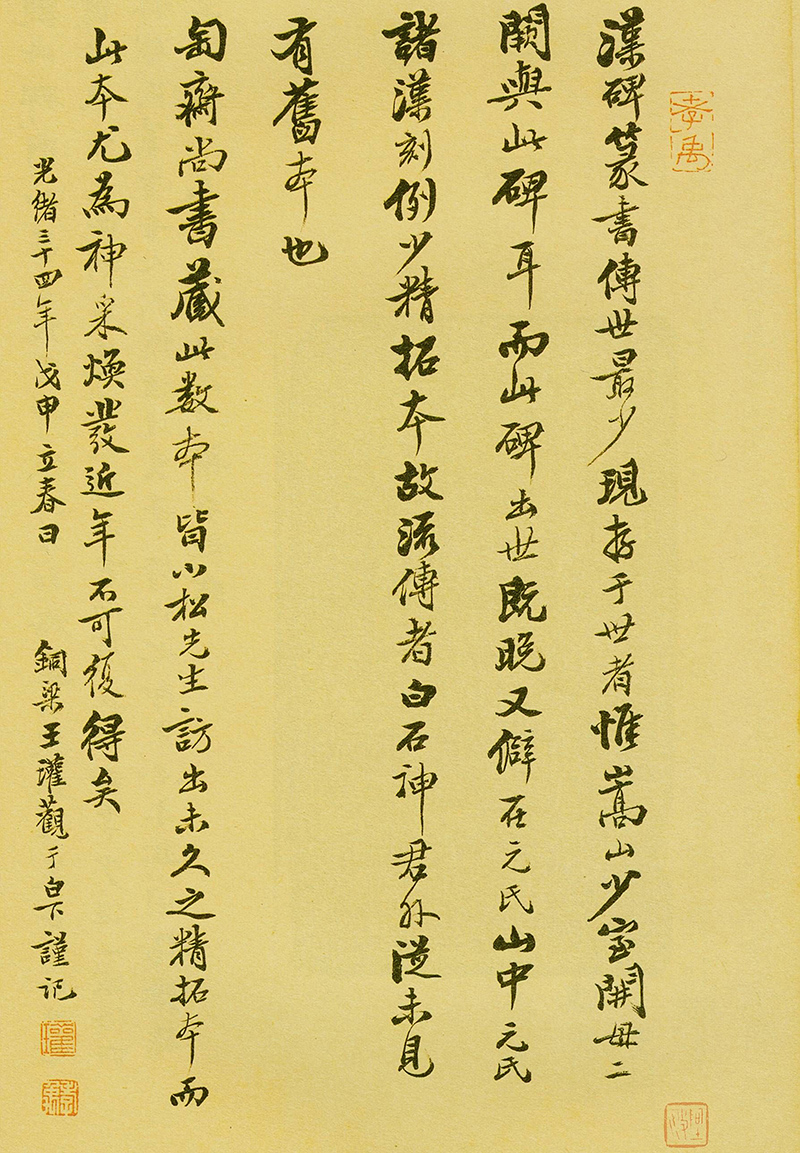 孝禹
漢碑篆書傳世最少現存于世者惟嵩山少室開母二
闕與此碑耳而此碑出世既晚又僻在元氏山中元氏
諸漢刻例少精拓本故流傳者白石神君外從未見
有舊本也
匋齋尚書藏此數本皆小松先生訪出未久之精拓本而
此本尤為神采煥發近年不可復得矣
光緒三十四年戊申立春日 銅梁王瓘觀于白下謹記